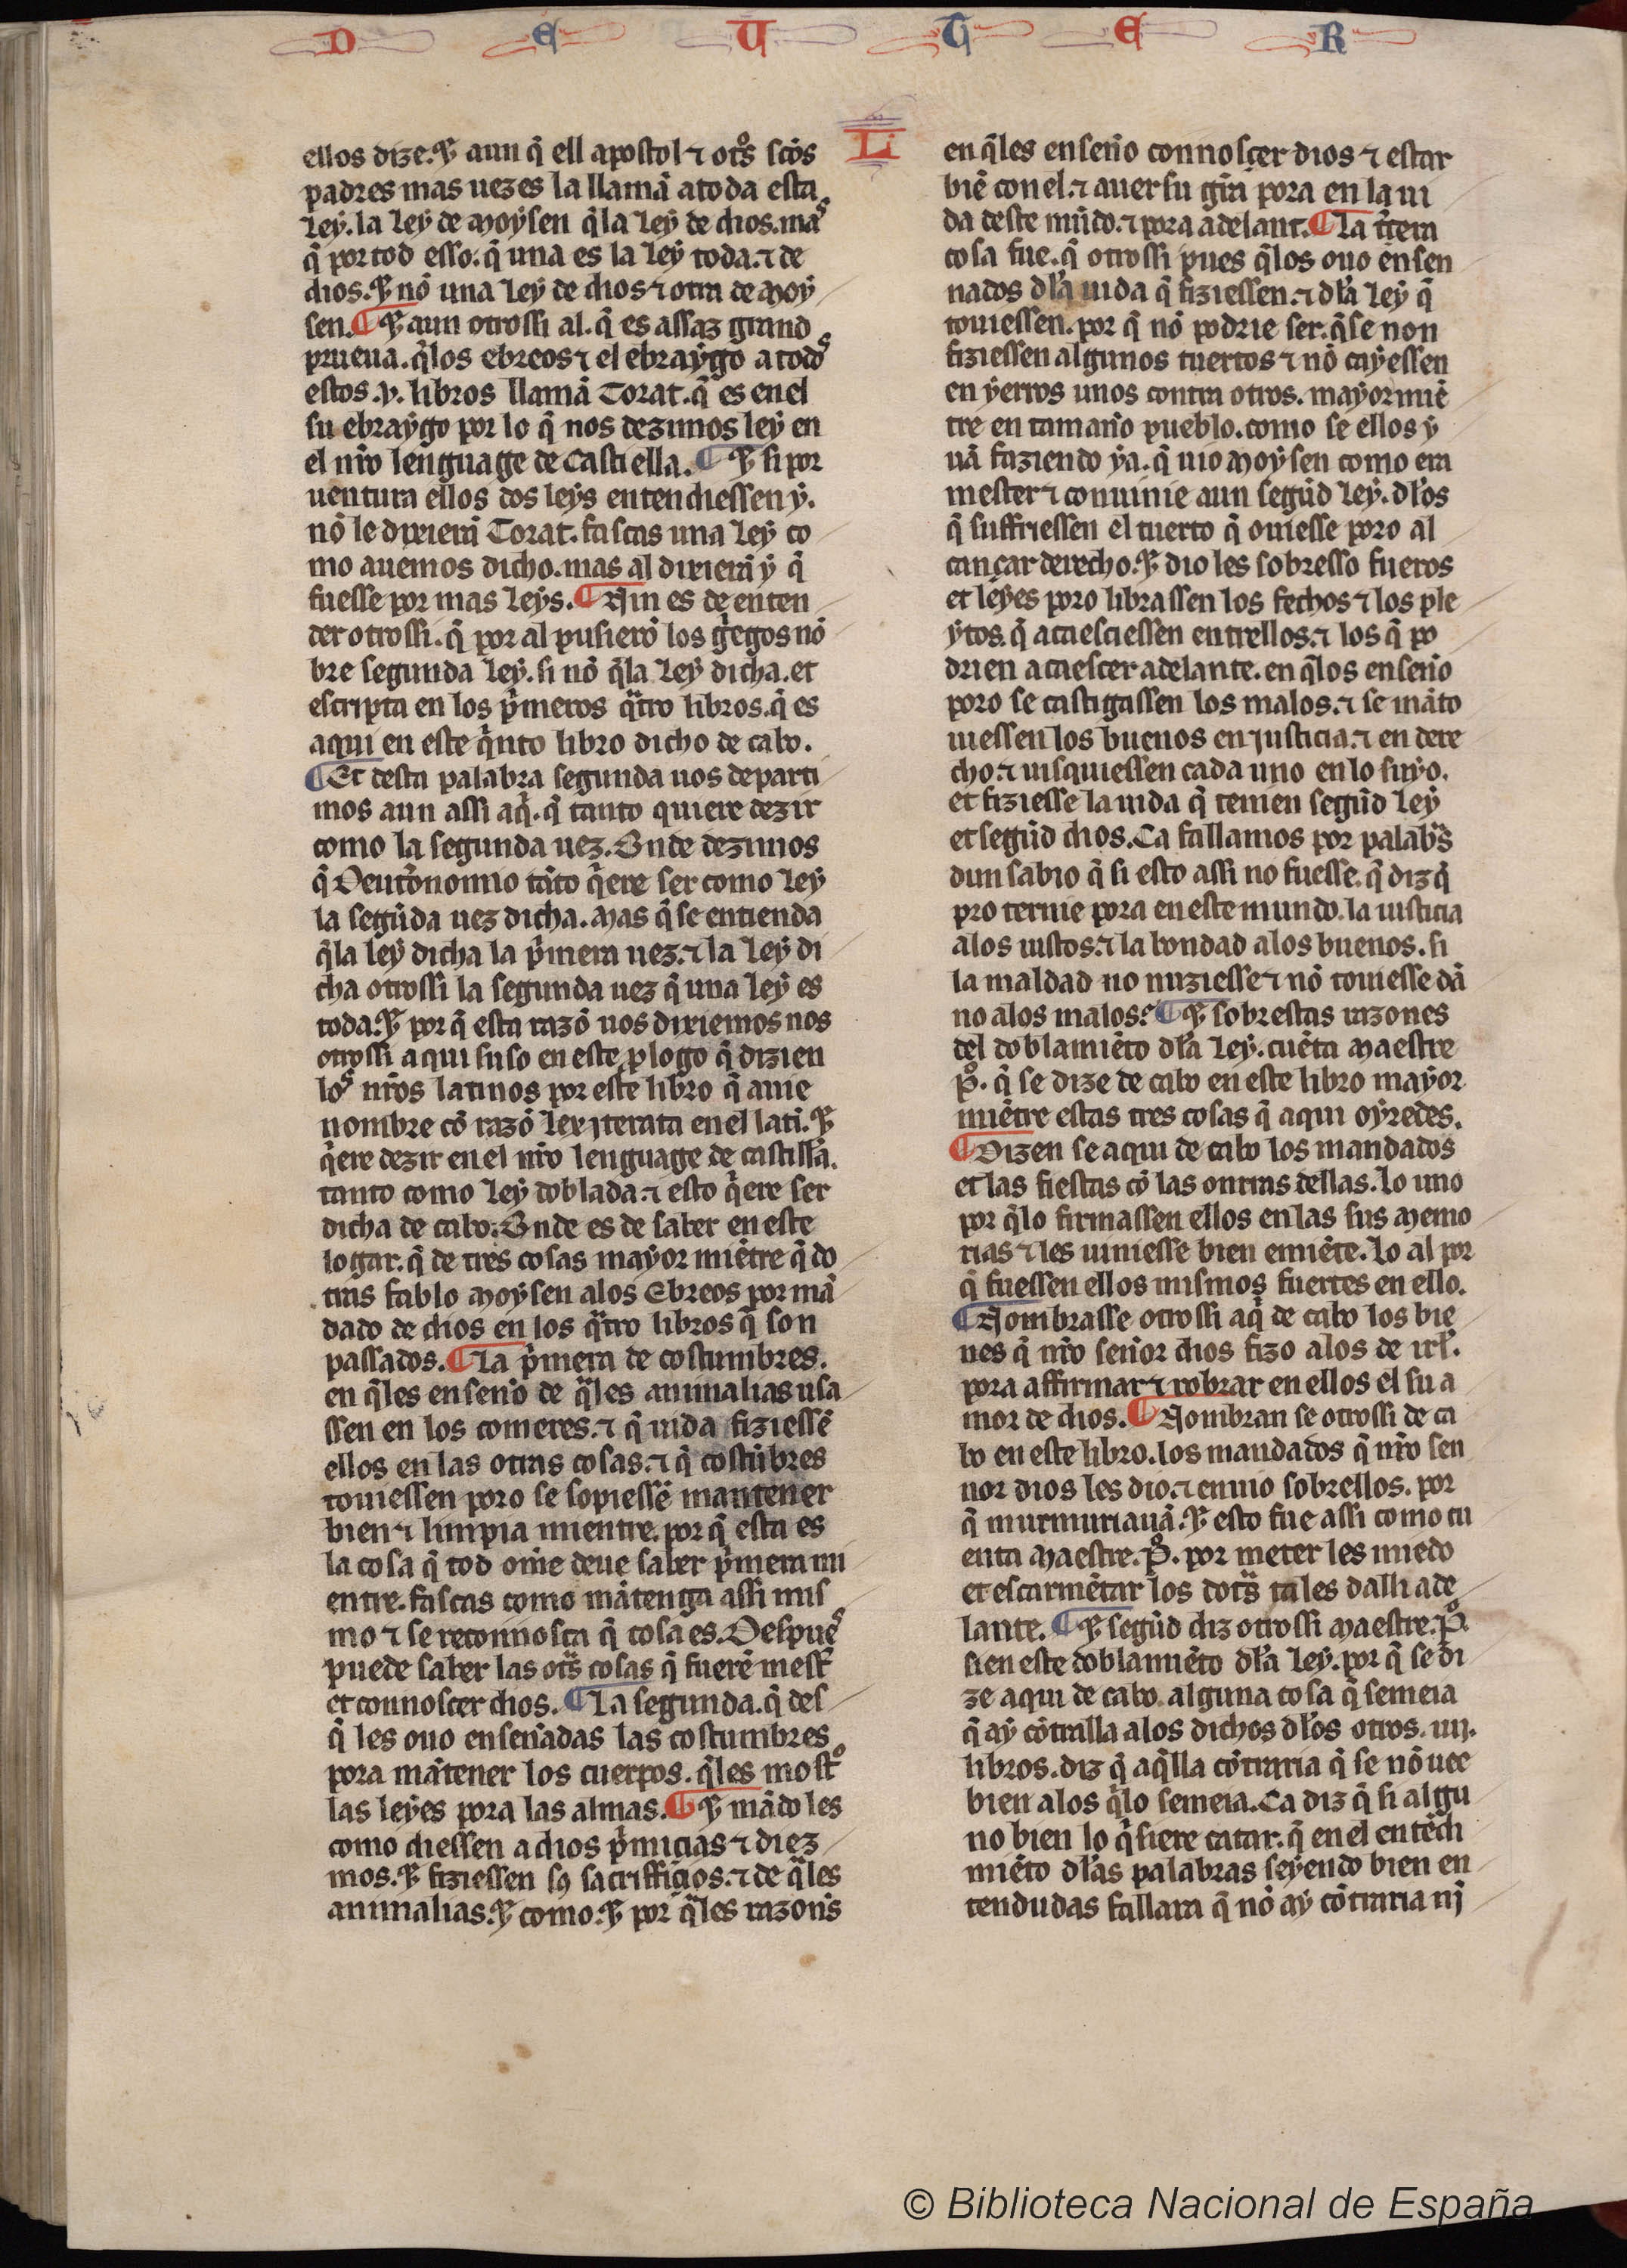 D E U T E R
Li
ellos dize. ⁊ aun q̄ ell apostol ⁊ ot̃s sc̃os
padres mas uezes la llamã a toda esta
ley. la ley de moysen q̃ la ley de dios. mas
q̃ por tod esso. q̃ una es la ley toda. ⁊ de
dios. ⁊ nõ una ley de dios ⁊ otra de moy
sen. ¶ ⁊ aun otrossi al. q̃ es assaz grand
prueua. q̃ los ebreos ⁊ el ebraygo a todos
estos .v. libros llamã Torat. q̃ es en el
su ebraygo por lo q̃ nos dezimos ley en
el nr̃o lenguage de castiella. ¶ ⁊ si por
uentura ellos dos leys entendiessen y.
nõ le dixierã Torat. fascas una ley co
mo auemos dicho. mas al dixierã y q̃
fuesse por mas leys. ¶ Aun es de enten
der otrossi. q̃ por al pusierõ los gͥegos nõ
bre segunda ley. si nõ q̃ la ley dicha. et
escripta en los pͥmeros qͣtro libros. q̃ es
aqui en este qͥnto libro dicho de cabo.
¶ Et desta palabra segunda uos departi
mos aun assi aqͥ. q̃ tanto quiere dezir
como la segunda uez. Onde dezimos
q̃ Deut̃onomio tãto qͥere ser como ley
la segũda uez dicha. mas q̃ se entienda
q̃ la ley dicha la pͥmera uez. ⁊ la ley di
cha otrossi la segunda uez q̃ una ley es
toda. ⁊ por q̃ esta razõ uos dixiemos nos
otrossi aqui suso en este plogo q̃ dizien
los nr̃os latinos por este libro q̃ auie
nombre cõ razõ lex iterata en el latĩ. ⁊
qͥere dezir en el nr̃o lenguage de castiłła.
tanto como ley doblada. ⁊ esto qͥere ser
dicha de cabo. Onde es de saber en este
logar. q̃ de tres cosas mayor miẽtre q̃ do
tras fablo moysen a los Ebreos por mã
dado de dios en los qͣtro libros q̃ son
passados. ¶ La pͥmera de costumbres.
en q̃ les enseño de qͣles animalias usa
ssen en los comeres. ⁊ q̃ uida fiziessẽ
ellos en las otras cosas. ⁊ q̃ costũbres
touiessen poro se sopiessẽ mantener
bien ⁊ limpia mientre. por q̃ esta es
la cosa q̃ tod om̃e deue saber pͥmera mi
entre. fascas como mãtenga assi mis
mo ⁊ se reconnosca q̃ cosa es. Despues
puede saber las ot̃s cosas q̃ fuerẽ mest̃
et connoscer dios. ¶ La segunda. q̃ des
q̃ les ouo enseñadas las costumbres
pora mãtener los cuerpos. q̃ les mostͦ
las leyes pora las almas. ¶ ⁊ mãdo les
como diessen a dios pͥmicias ⁊ diez
mos. ⁊ fiziessen sꝯ sacrifficios. ⁊ de qͣles
animalias. ⁊ como. ⁊ por qͣles razon̄s
en q̃ les enseño connoscer dios ⁊ estar
biẽ con el. ⁊ auer su gr̃a pora en la ui
da deste mũdo. ⁊ pora adelant. ¶ La t̃cera
cosa fue. q̃ otrossi pues q̃ los ouo ensen
nados dła uida q̃ fiziessen. ⁊ dła ley q̃
touiessen. por q̃ nõ podrie ser. q̃ se non
fiziessen algunos tuertos ⁊ nõ cayessen
en yerros unos contra otros. mayor miẽ
tre en tamaño pueblo. como se ellos y
uã faziendo ya. q̃ uio moysen como era
mester ⁊ conuinie aun segũd ley. dłos
q̃ suffriessen el tuerto q̃ ouiesse poro al
cançar derecho. ⁊ dio les sobresso fueros
et leyes poro librassen los fechos ⁊ los ple
ytos. q̃ acaesciessen entrellos. ⁊ los q̃ po
drien acaescer adelante. en q̃ los enseño
poro se castigassen los malos. ⁊ se mãto
uiessen los buenos en justicia. ⁊ en dere
cho. ⁊ uisquiessen cada uno en lo suyo.
et fiziesse la uida q̃ tenien segũd ley
et segũd dios. Ca fallamos por palabͣs
dun sabio q̃ si esto assi no fuesse. q̃ diz q̃
pro ternie pora en este mundo. la iusticia
a los iustos. ⁊ la bondad a los buenos. si
la maldad no nuziesse ⁊ nõ touiesse dã
no a los malos? ¶ ⁊ sobrestas razones
del doblamiẽto dła ley. cuẽta maestre
pͦ. q̃ se dize de cabo en este libro mayor
miẽtre estas tres cosas q̃ aqui oyredes.
¶ Dizen se aqui de cabo los mandados
et las fiestas cõ las onrras dellas. lo uno
por q̃ lo firmassen ellos en las sus memo
rias ⁊ les uiniesse bien emiẽte. lo al por
q̃ fuessen ellos mismos fuertes en ello.
¶ Nombrasse otrossi aqͥ de cabo los bie
nes q̃ nr̃o señor dios fizo a los de isrł.
pora affirmar ⁊ robrar en ellos el su a
mor de dios. ¶ Nombran se otrossi de ca
bo en este libro. los mandados q̃ nr̃o sen
nor dios les dio. ⁊ enuio sobrellos. por
q̃ murmuriauã. ⁊ esto fue assi como cu
enta maestre. pͦ. por meter les miedo
et escarmẽtar los dotͣs tales dalli ade
lante. ¶ ⁊ segũd diz otrossi maestre. pͦ.
si en este doblamiẽto dła ley. por q̃ se di
ze aqui de cabo. alguna cosa q̃ semeia
q̃ ay cõtralla a los dichos dłos otros. iiij.
libros. diz q̃ aq̃lla cõtraria q̃ se nõ uee
bien a los q̃ lo semeia. Ca diz q̃ si algu
no bien lo qͥsiere catar. q̃ en el entẽdi
miẽto dłas palabras seyendo bien en
tendudas fallara q̃ nõ ay cõtraria nĩ
© Biblioteca Nacional de España